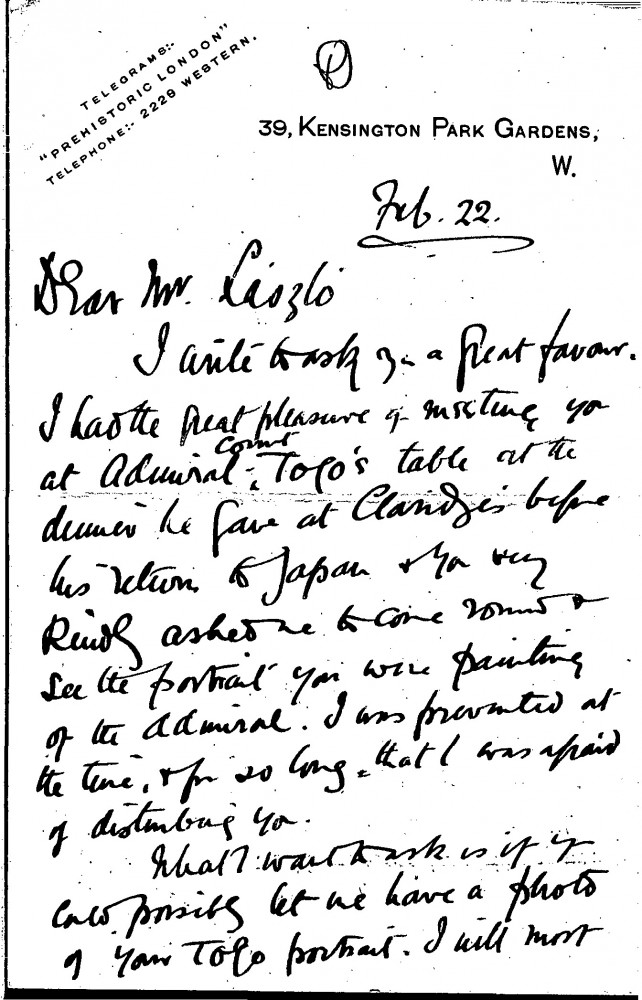 TELEGRAMS:-
"PREHISTORIC LONDON"
TELEPHONE:- 2229 WESTERN.
39, KENSINGTON PARK GARDENS,
W.
Feb. 22.
Dear Mr. László
I write to ask you a great favour.
I had the great pleasure of meeting you
at Admiral Count Togo's table at the
dinner he gave at Claridge's before
his return to Japan & you very
kindly asked me to come round &
see the portrait you were painting
of the Admiral. I was prevented at
the time, & for so long, that I was afraid
of disturbing you.
What I want to ask is if you
could possibly let me have a photo
of your Togo portrait. I will most